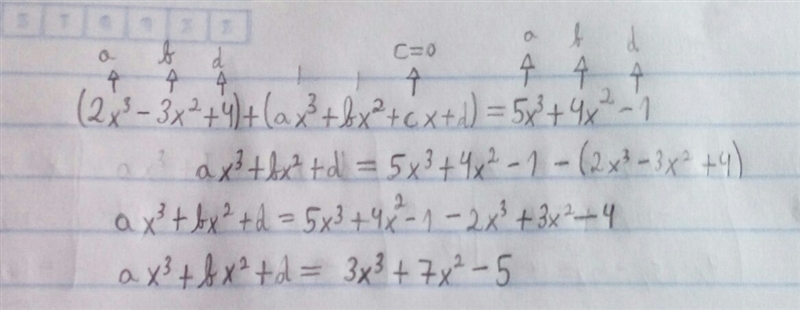 a b d c=0 a b d
(2x³-3x²+4)+(ax³+bx²+cx+d)=5x³+4x²-1
ax³+bx²+d=5x³+4x²-1-(2x³-3x²+4)
ax³+bx²+d=5x³+4x²-1-2x³+3x²-4
ax³+bx²+d=3x³+7x²-5